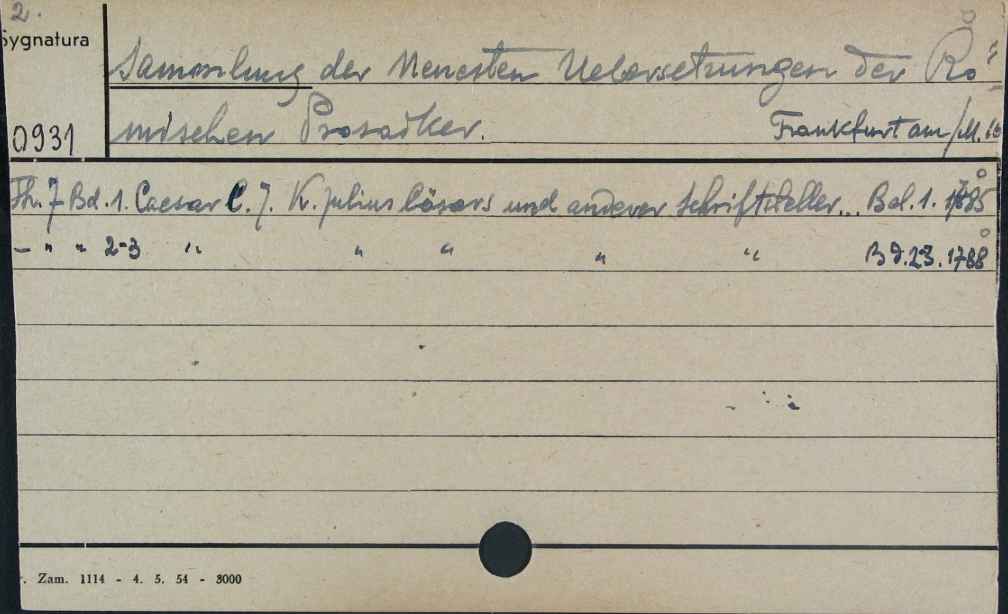 2.
Sygnatura
Sammlung der Neuesten Uebersetzungen der Rö-
0931 mischen Prosaiker. Frankfurt am/M.
Th. 7 Bd. 1. Caesar C. J. K. Julius Cäsars und anderer Schriftsteller... Bd. 1. 1785
– " " 2-3 " " " " " Bd. 23. 1788
. Zam. 1114 - 4. 5. 54 - 3000